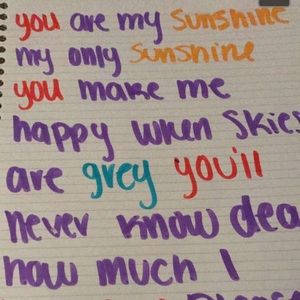 you are my sunshine
my only sunshine
you make me
happy when skies
are grey you'll
never know dea
how much I